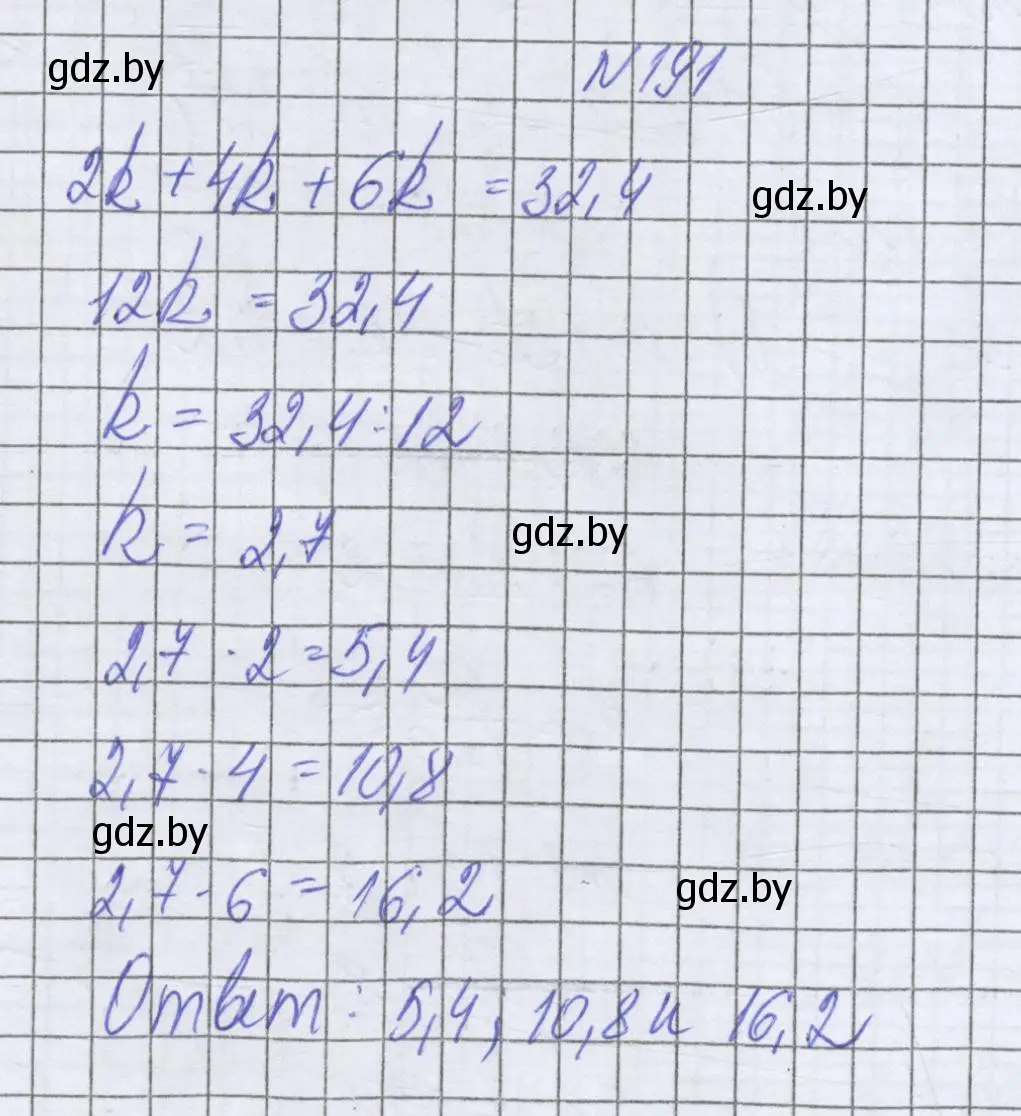 gdz.by
N 191
2k + 4k + 6k = 32,4
gdz.by
12k = 32,4
k = 32,4 : 12
k = 2,7
gdz.by
2,7 · 2 = 5,4
2,7 · 4 = 10,8
gdz.by
2,7 · 6 = 16,2
gdz.by
Ответ: 5,4, 10,8 и 16,2